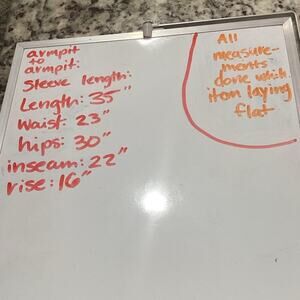 armpit
to
armpit:
Sleeve length:
Length: 35"
Waist: 23"
hips: 30"
inseam: 22"
rise: 16"
All
measure-
ments
done while
item laying
flat